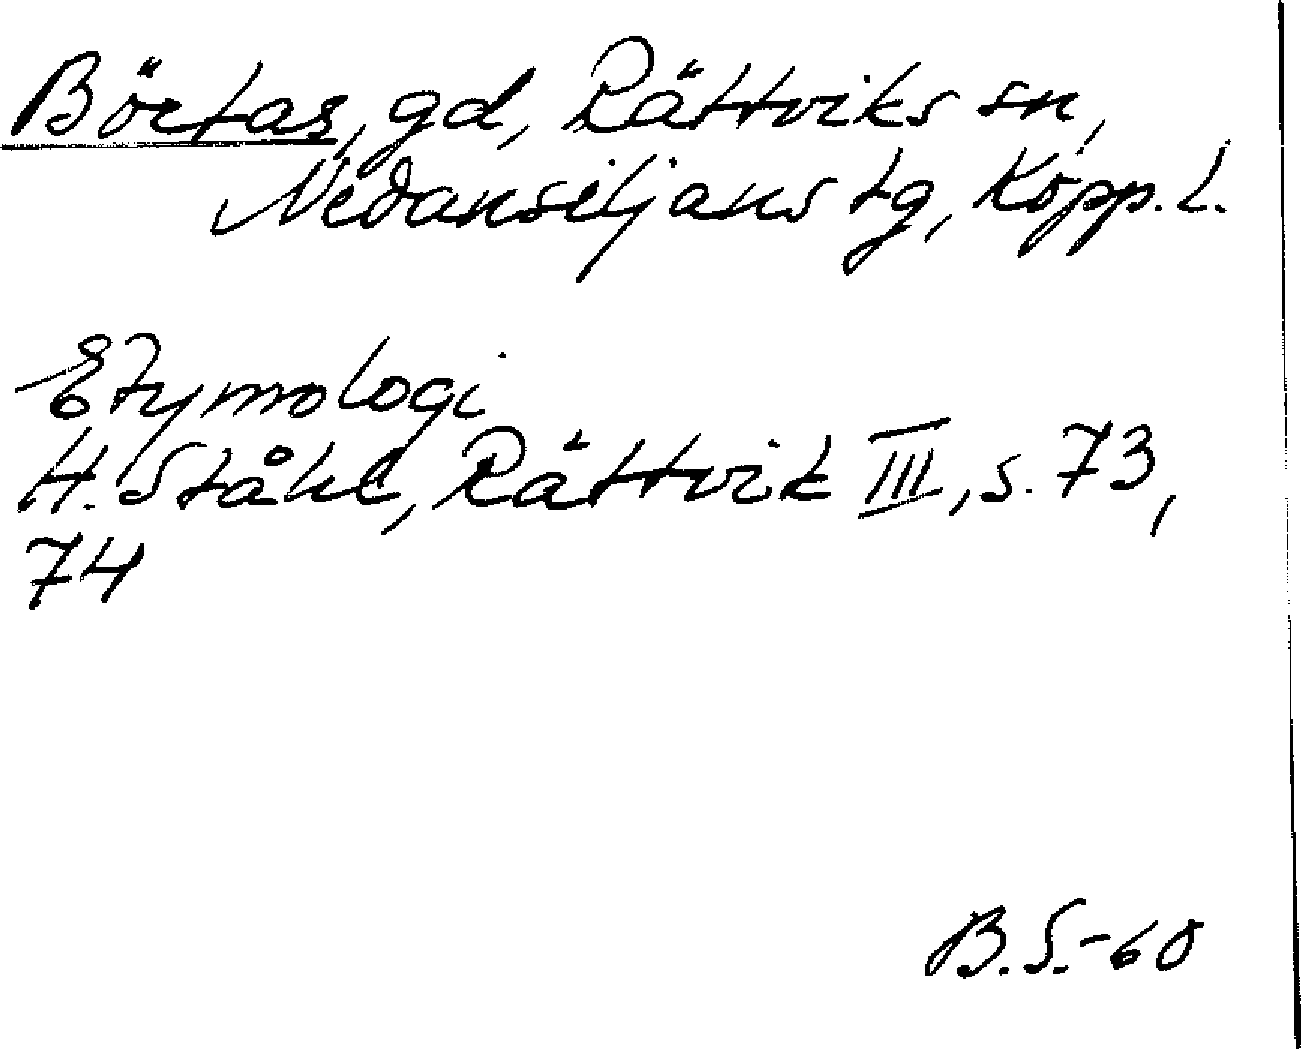 Börtas, gd, Rättviks sn,
Nedansiljans tg, Kopp. l.
Etymologi
H. Ståhl, Rättvik III, s. 73,
74
B.S.-60